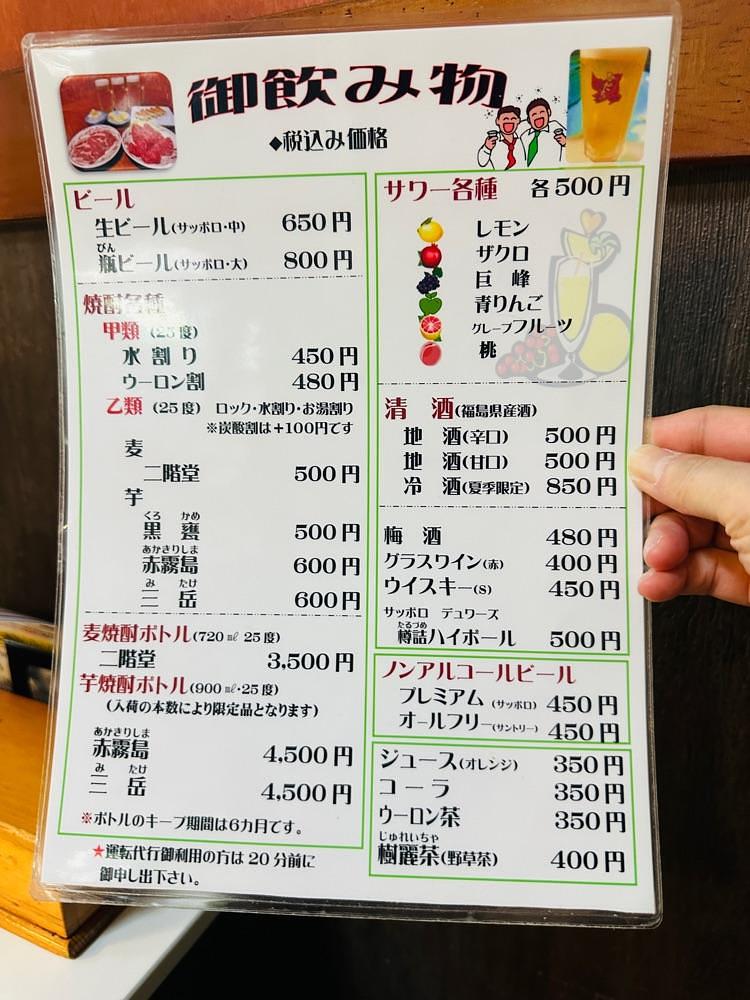 御飲み物
◆税込み価格
ビール
生ビール(サッポロ・中) 650円
びん
瓶ビール(サッポロ・大) 800円
焼酎各種
甲類 (25度)
水割り 450円
ウーロン割 480円
乙類 (25度) ロック・水割り・お湯割り
※炭酸割は+100円です
麦
二階堂 500円
芋
くろ かめ
黒甕 500円
あかきりしま
赤霧島 600円
み たけ
三岳 600円
麦焼酎ボトル(720㎖ 25度)
二階堂 3,500円
芋焼酎ボトル(900㎖・25度)
(入荷の本数により限定品となります)
あかきりしま
赤霧島 4,500円
み たけ
三岳 4,500円
※ボトルのキープ期間は6カ月です。
★運転代行御利用の方は20分前に
御申し出下さい。
サワー各種 各500円
レモン
ザクロ
巨峰
青りんご
グレープフルーツ
桃
清酒(福島県産酒)
地酒(辛口) 500円
地酒(甘口) 500円
冷酒(夏季限定) 850円
梅酒 480円
グラスワイン(赤) 400円
ウイスキー(S) 450円
サッポロ デュワーズ
たるづめ
樽詰ハイボール 500円
ノンアルコールビール
プレミアム(サッポロ) 450円
オールフリー(サントリー) 450円
ジュース(オレンジ) 350円
コーラ 350円
ウーロン茶 350円
じゅれいちゃ
樹麗茶(野草茶) 400円